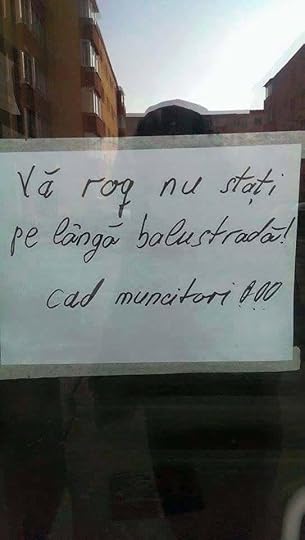 Vă rog nu stați
pe lângă balustradă!
cad muncitori!!!